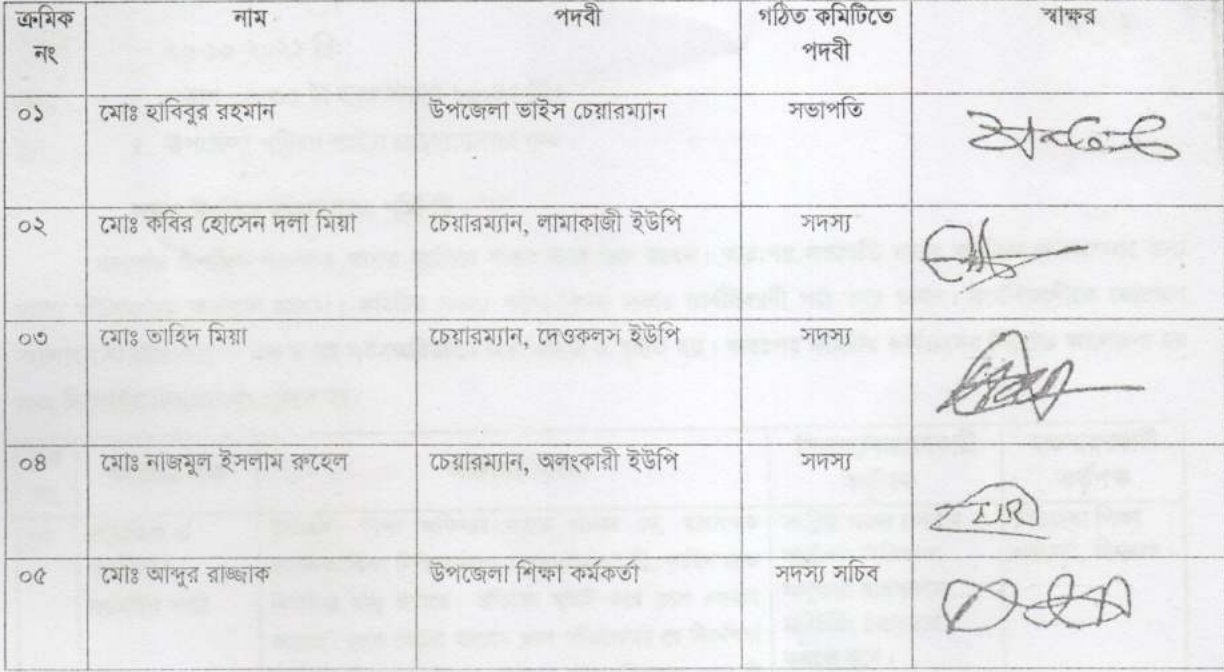 ক্রমিক নং নাম পদবী গঠিত কমিটিতে পদবী স্বাক্ষর
০১ মোঃ হাবিবুর রহমান উপজেলা ভাইস চেয়ারম্যান সভাপতি
০২ মোঃ কবির হোসেন দলা মিয়া চেয়ারম্যান, লামাকাজী ইউপি সদস্য
০৩ মোঃ তাহিদ মিয়া চেয়ারম্যান, দেওকলস ইউপি সদস্য
০৪ মোঃ নাজমুল ইসলাম রুহেল চেয়ারম্যান, অলংকারী ইউপি সদস্য
০৫ মোঃ আব্দুর রাজ্জাক উপজেলা শিক্ষা কর্মকর্তা সদস্য সচিব